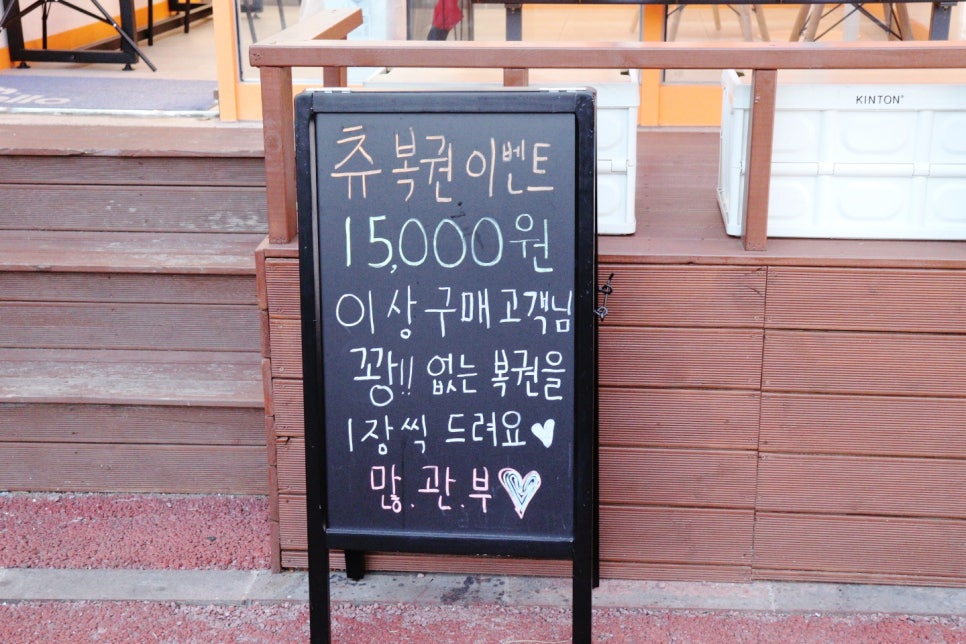 KINTON
츄 복권 이벤트
15,000원
이상 구매 고객님
꽝!! 없는 복권을
1장씩 드려요♥
많.관.부♥